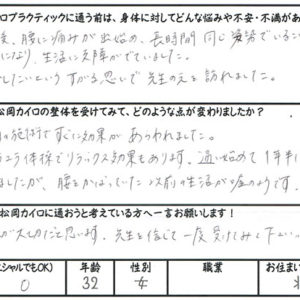 ロプラクティックに通う前は、身体に対してどんな悩みや不安・不満があ
、腰に痛みが出始め、長時間同じ姿勢でいる
になり、生活に支障がでていました。
したいという すがる思いで先生の元を訪れました。
松岡カイロの整体を受けてみて、どのような点が変わりましたか?
の施術ですぐに効果が あらわれました。
体操でリラックス効果もあります。通い始めて1年半
ましたが、腰をかばっていた以前の生活が嘘のようです。
松岡カイロに通おうと考えている方へ一言お願いします!
が大切だと思います。先生を信じて一度受けてみて下さい
シャルでもOK) 年齢 性別 職業 お住まい
O 32 女